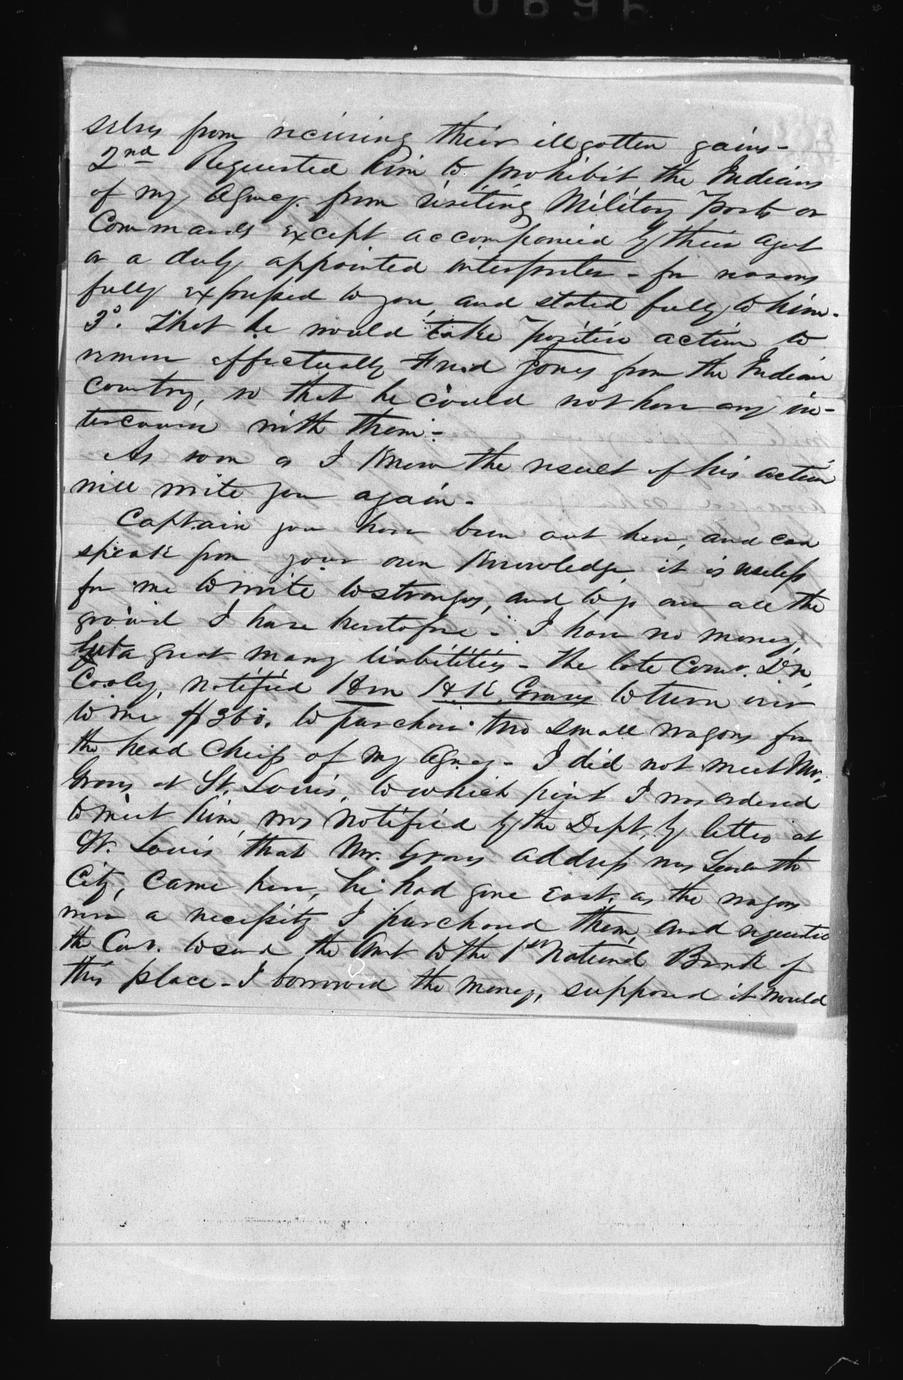 selves from receiving their illgotten gains-
2nd Requested him to prohibit the Indians
of my Agency from visiting Military Posts or
Commands except accompanied by their agent
or a duly appointed interpreter - for reasons
fully expressed to you and stated fully to him.
3d. That he would take positive action to
remove effectually Fred Jones from the Indian
country, so that he could not have any in-
tercourse with them.-
As soon as I know the result of his action
will write you again.-
Captain you have been out here, and can
speak from your own knowledge, it is useless
for me to write to strangers, and to go over all the
ground I have heretofore.- I have no money,
but a great many liabilities - The late Comr. D.N.
Cooley, notified Hon H.K. Graves to turn over
to me $360. to purchase two small wagons for
the head Chiefs of my Agency - I did not meet Mr.
Graves at St. Louis, to which point I was ordered
to meet him was notified by the Dept, by letter at
St. Louis that Mr. Graves address was
City, came here, he had gone East. as the wagons
were a necessity I purchased them, and requested
the Com. to send the Amt to the 1st National Bank of
this place - I borrowed the money, supposed it would